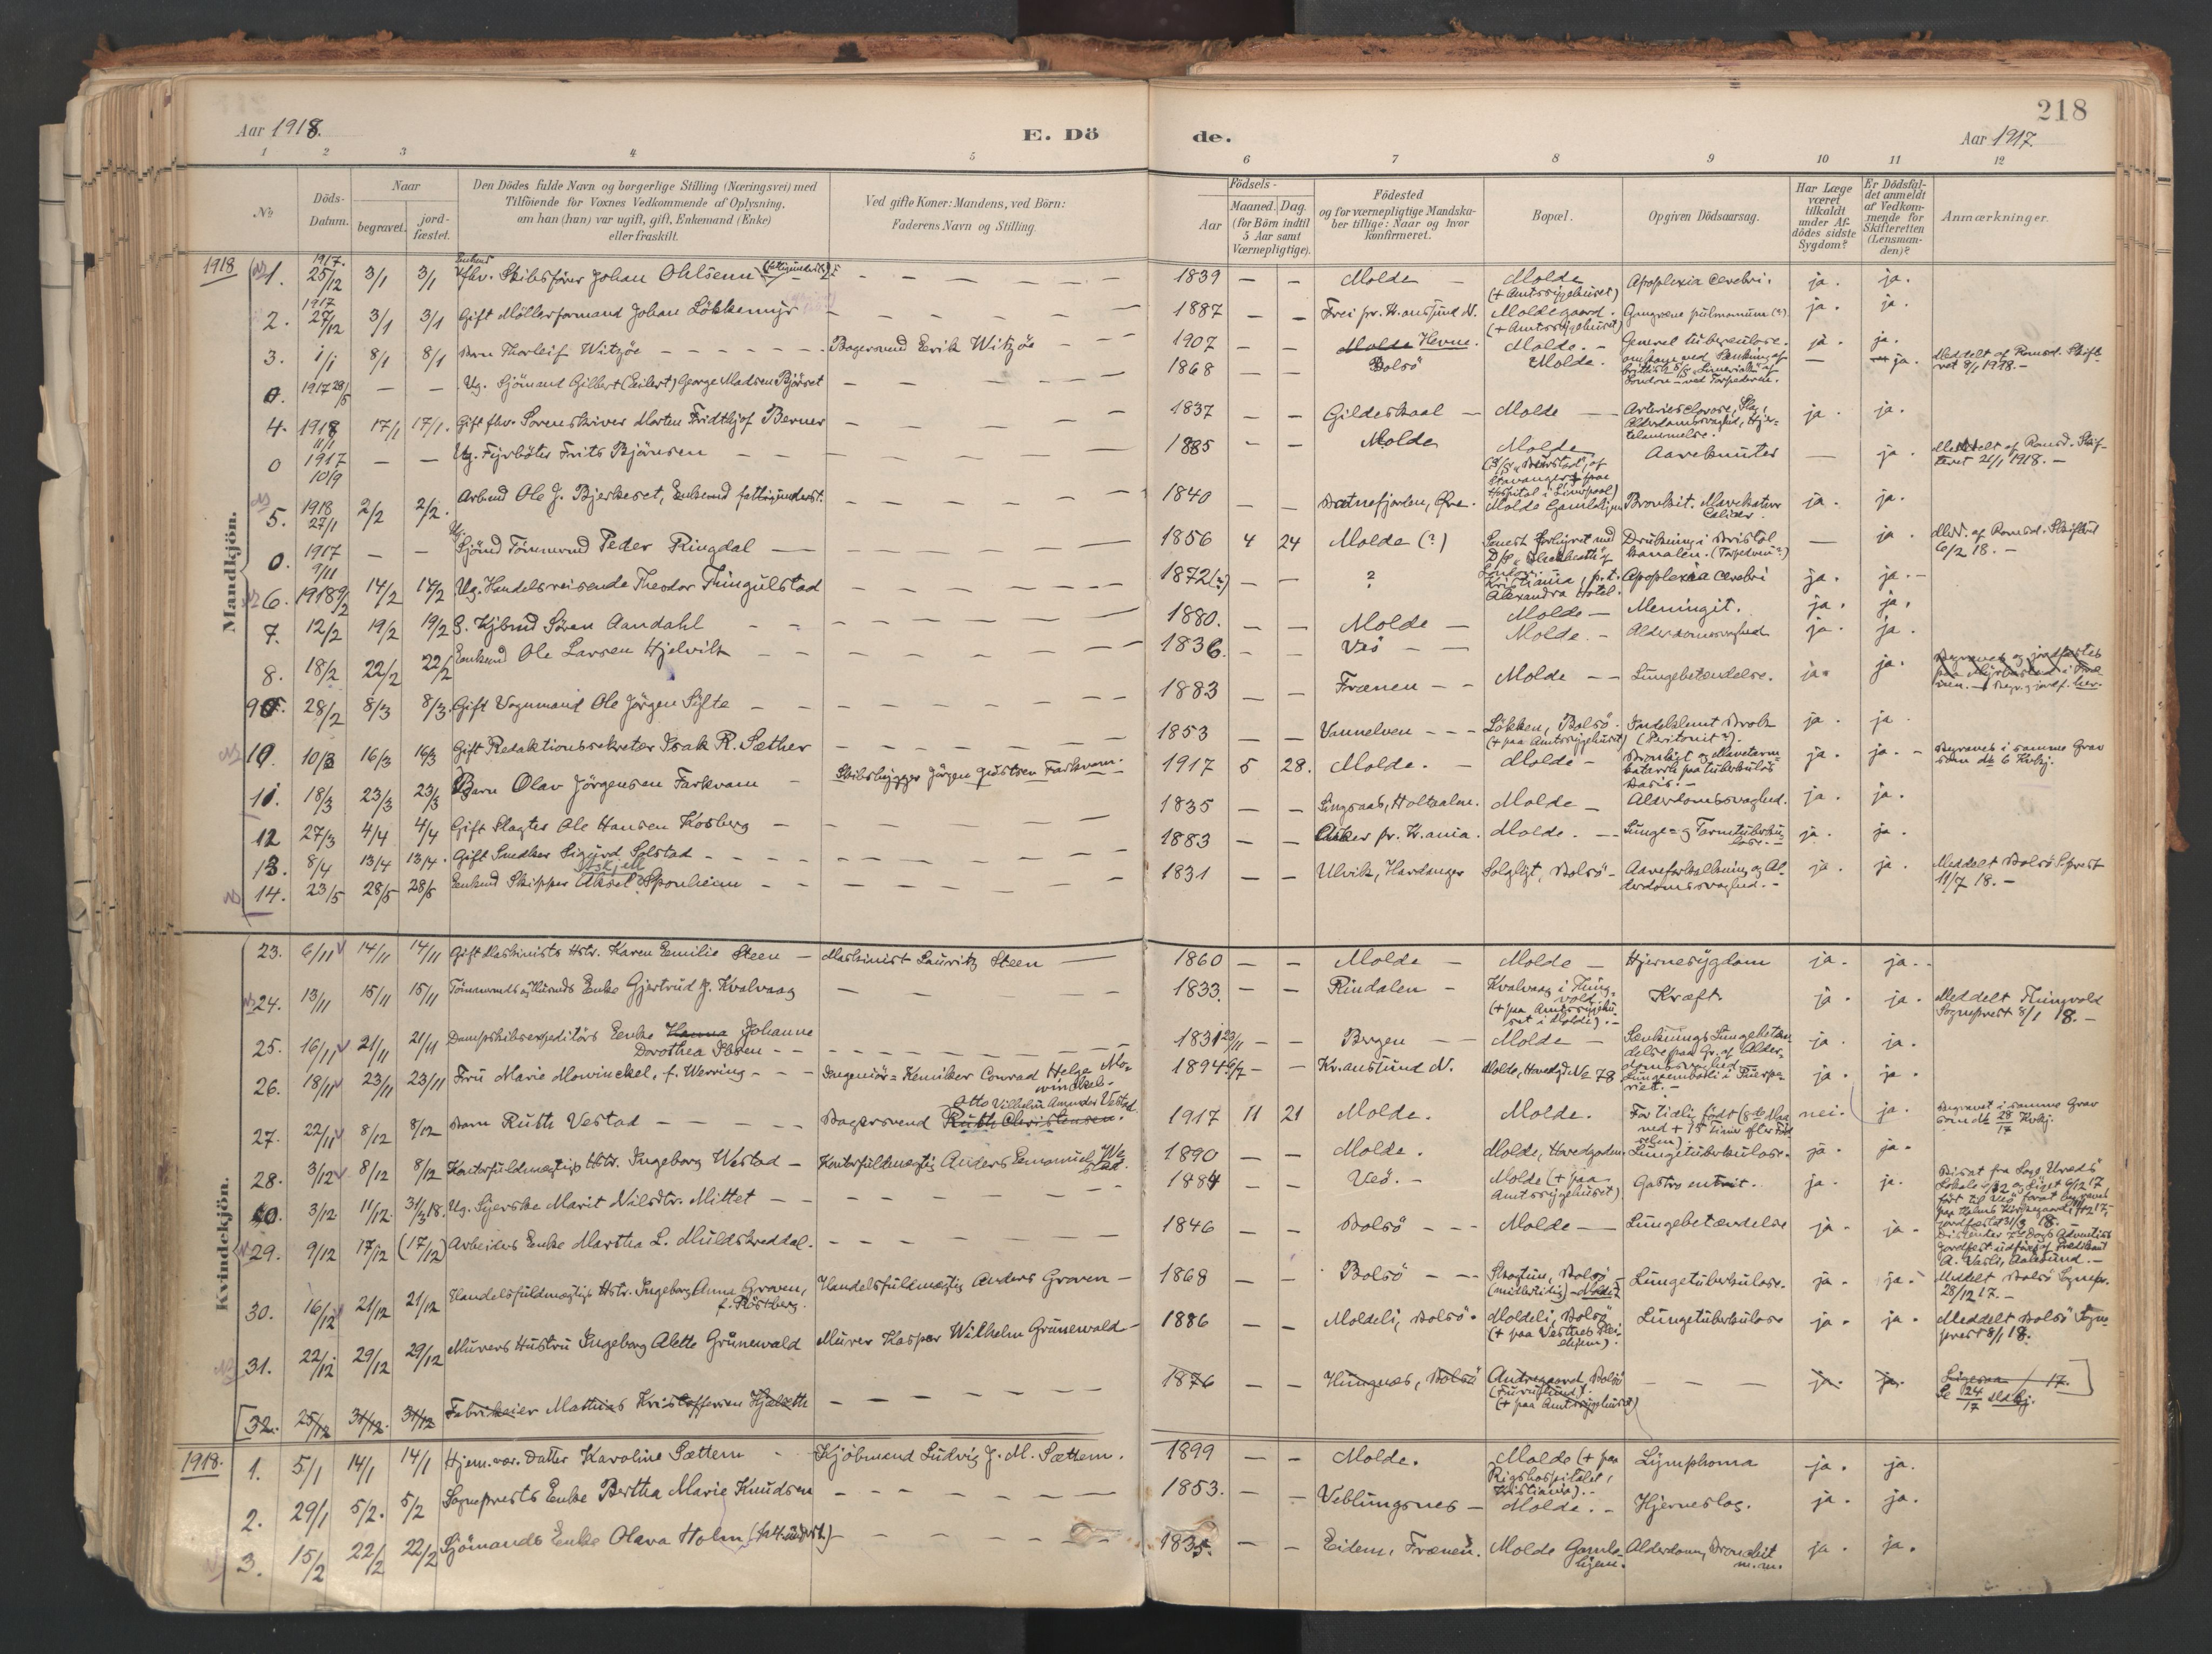 218
Aar 1918.
E. Dö
de.
Aar 1917.
1 2 3 4 5 6 7 8 9 10 11 12
№
Döds-
Datum.
Naar
begravet.
jord-
fæstet.
Den Dödes fulde Navn og borgerlige Stilling (Næringsvei) med
Tilföiende for Voxnes Vedkommende af Oplysning,
om han (hun) var ugift, gift, Enkemand (Enke)
eller fraskilt.
Ved gifte Koner: Mandens, ved Börn:
Faderens Navn og Stilling.
Födsels-
Aar
Maaned. Dag.
(for Börn indtil
5 Aar samt
Værnepligtige).
Födested
og for værnepligtige Mandska-
ber tillige: Naar og hvor
konfirmeret.
Bopæl.
Opgiven Dödsaarsag.
Har Læge
været
tilkaldt
under Af-
dödes sidste
Sygdom?
Er Dödsfal-
det anmeldt
af Vedkom-
mende for
Skifteretten
(Lensman-
den)?
Anmærkninger.
Mandkjön.
1918 1. 1917. 25/12 3/1 3/1 fhv. Skibsförer Johan Ohlsenn 1839 — — Molde Molde (+ Amtssygehuset) Apoplexia cerebri. ja. ja.
2. 1917 27/12 3/1 3/1 Gift Möllerformand Johan Lökkemyr 1887 — — Frei pr. Kr.ansund N. Moldegaard. (+ Amtssygehuset) Gangræne pulmonum (?) ja. ja.
3. 1/1 8/1 8/1 Barn Thorleif Witzöe Bagersvend Eerik Witzöe 1907 — — Molde Hevne. Molde. Generel tuberculose. ja. ja.
0. 1917 28/5 — — Ug. Sjömand Gilbert (Eilert) George Madsen Björset 1868 — — Bolsö Molde. — ja. Meddelt af Romsd. Skifteret 8/1 1918.
4. 1918 11/1 17/1 17/1. Gift fhv. Sorenskriver Morten Fridthjof Berner 1837 — — Gildeskaal Molde Arteriesclerose, Slag, Alderdomssvaghed, Hjertelammelse. ja. ja.
0 1917 10/9 — — Ug. Fyrböter Frits Björnsen 1885 — — Molde Molde Aareknuter — ja. Meddelt af Romsd. Skifteret 21/1 1918.
5. 1918 27/1 2/2 2/2. Arbmd Ole J. Bjerkeset, Enkemd fattigunderst. 1840 — — Batnefjorden, Øre. Molde Gamlehjem Bronkit. Mavekatarr ja. ja.
0. 1917 9/11 — — Ug. Sjömd Tömmermd Peder Ringdal 1856 4 24 Molde (?) Drukning i Bristol kanalen. (Torpedert?) — ja. Medd. af Romsd. Skifteret 6/2 18.
6. 1918 9/2 14/2 14/2 Ug. Handelsreisende Theodor Thingulstad 1872(?) — — ? Kristiania, p.t. Alexandra Hotel. Apoplexia cerebri ja. ja.
7. 12/2 19/2 19/2 G. Kjbmd Sören Aandahl 1880. — — Molde Molde Meningit. ja. ja.
8. 18/2 22/2 22/2 Enkemd Ole Larsen Hjelvik 1836. — — Veö Molde. Alderdomssvaghed ja. ja.
9. 28/2 8/3 8/3. Gift Vognmand Ole Jörgen Sylte 1883 — Frænen Molde Lungebetændelse. ja. ja.
10. 10/3 16/3 16/3 Gift Redaktionssekretær Isak R. Sæther 1853 — — Vannelven Lökken, Bolsö. (+ paa Amtssygehuset) Indeklemt Brok (Peritonit?). ja. ja
11. 18/3 23/3 23/3 Barn Olav Jörgensen Farkvam Skibsbygger Jörgen Gustsen Farkvam. 1917 5 28. Molde. Molde Bronkit og Mavetarmkatarrh paa tuberkulös Basis. ja. ja. Begraves i samme Grav som № 6 Kvkj.
12 27/3 4/4 4/4 Gift Slagter Ole Hansen Kosberg 1835 — — Singsaas, Holtaalen. Molde Alderdomssvaghed. ja. ja.
13. 8/4 13/4 13/4. Gift Snedker Sigurd Solstad 1883 — — Asker pr. Kr.ania. Molde. Lunge- og Tarmtuberkulose. ja. ja.
14. 23/5 28/5 28/5 Enkemd Skipper Aksel Askjell Sponheim 1831 — — Ulvik, Hardanger Solgløt, Bolsö Aareforkalkning og Alderdomssvaghed. ja. ja. Meddelt Bolsö S.prest 11/7 18.
Kvindekjön.
23. 6/11 14/11 14/11 Gift Maskinists Hstr. Karen Emilie Steen Maskinist Lauritz Steen 1860 — — Molde Molde Hjernesygdom ja. ja.
24. 13/11 15/11 15/11 Tömmermds og Husmds Enke Gjertrud J. Kvalvaag 1833. — — Rindalen Kvalvaag i Thingvold. (+ paa Amtssygehuset i Molde). Kræft. ja. ja. Meddelt Thingvold Sogneprest 8/1 18.
25. 16/11 21/11 21/11 Dampskibsexpeditörs Eenke Hanna Johanne Dorothea Ibsen 1831 23/11 — — Bergen Molde Sænknings Lungebetændelse paa Gr. af Alderdomssvaghed. ja. ja.
26. 18/11 23/11 23/11 Fru Marie Mowinckel, f. Werring Ingeniör-Kemiker Conrad Helge Mowinckel. 1894 6/7 — — Kr.ansund N. Molde, Hovedgd № 78 Lungeemboli i Puerperiet. ja. ja.
27. 22/11 8/12 8/12 Barn Ruth Vestad Bagersvend Ruth Christensen. Otto Vilhelm Amandus Vestad. 1917 11 21 Molde. Molde. For tidlig födt nei. ja. Begravet i samme Grav
28. 3/12 8/12 8/12 Kontorfuldmægtigs Hstr. Ingeborg Westad Kontorfuldmægtig Anders Eemanuel Westad. 1890 — — Molde. Molde, Hovedgaden Lungetuberkulose. ja. ja.
0. 3/12 11/12. 31/3 18. Ug. Syerske Marit Nilsdtr. Mittet 1884 — — Veö. Molde (+ paa Amtssygehuset) Gastro entrit. ja. ja.
29. 9/12 17/12 (17/12) Arbeiders Enke Martha L. Muldskreddal. 1846 — — Bolsö Molde Lungebetændelse ja. ja.
30. 16/12 21/12 21/12 Handelsfuldmægtigs Hstr. Ingeborg Anna Groven, f. Röstberg. Handelsfuldmægtig Anders Groven 1868 — — Bolsö Lungetuberkulose. ja. ja. Meddelt Bolsö Sognepr. 28/12 17.
31. 22/12 29/12 29/12 Murers Hustru Ingeborg Alette Grünewald Murer Kaspar Wilhelm Grünewald 1886 — — Moldeli, Bolsö. Moldeli, Bolsö Lungetuberkulose ja. ja. Meddelt Bolsö Sogneprest 8/1 18.
[32. 25/12 31/12. 31/12 Fabrikeier Mathias Kristoffersen Hjelseth 1876 — — Hungnes, Bolsö ja. ja. Se 24/17 Mdkj.]
1918. 1. 5/1 14/1 14/1 Hjem.vær. Datter Karoline Sættem Kjöbmand Ludvig J. M. Sættem. 1899 — — Molde. Molde (+ paa Rigshospitalet, Kristiania). Lymphoma ja. ja.
2. 29/1 5/2. 5/2 Sogneprests Enke Bertha Marie Knudsen 1853. — — Veblungsnes Molde. Hjerneslag. ja. ja.
3. 15/2 22/2 22/2 Sjömands Enke Olava Holm 1835. — — Eidem, Frænen. Molde Gamlehjem. Alderdom, Bronchit m.m. ja. ja.